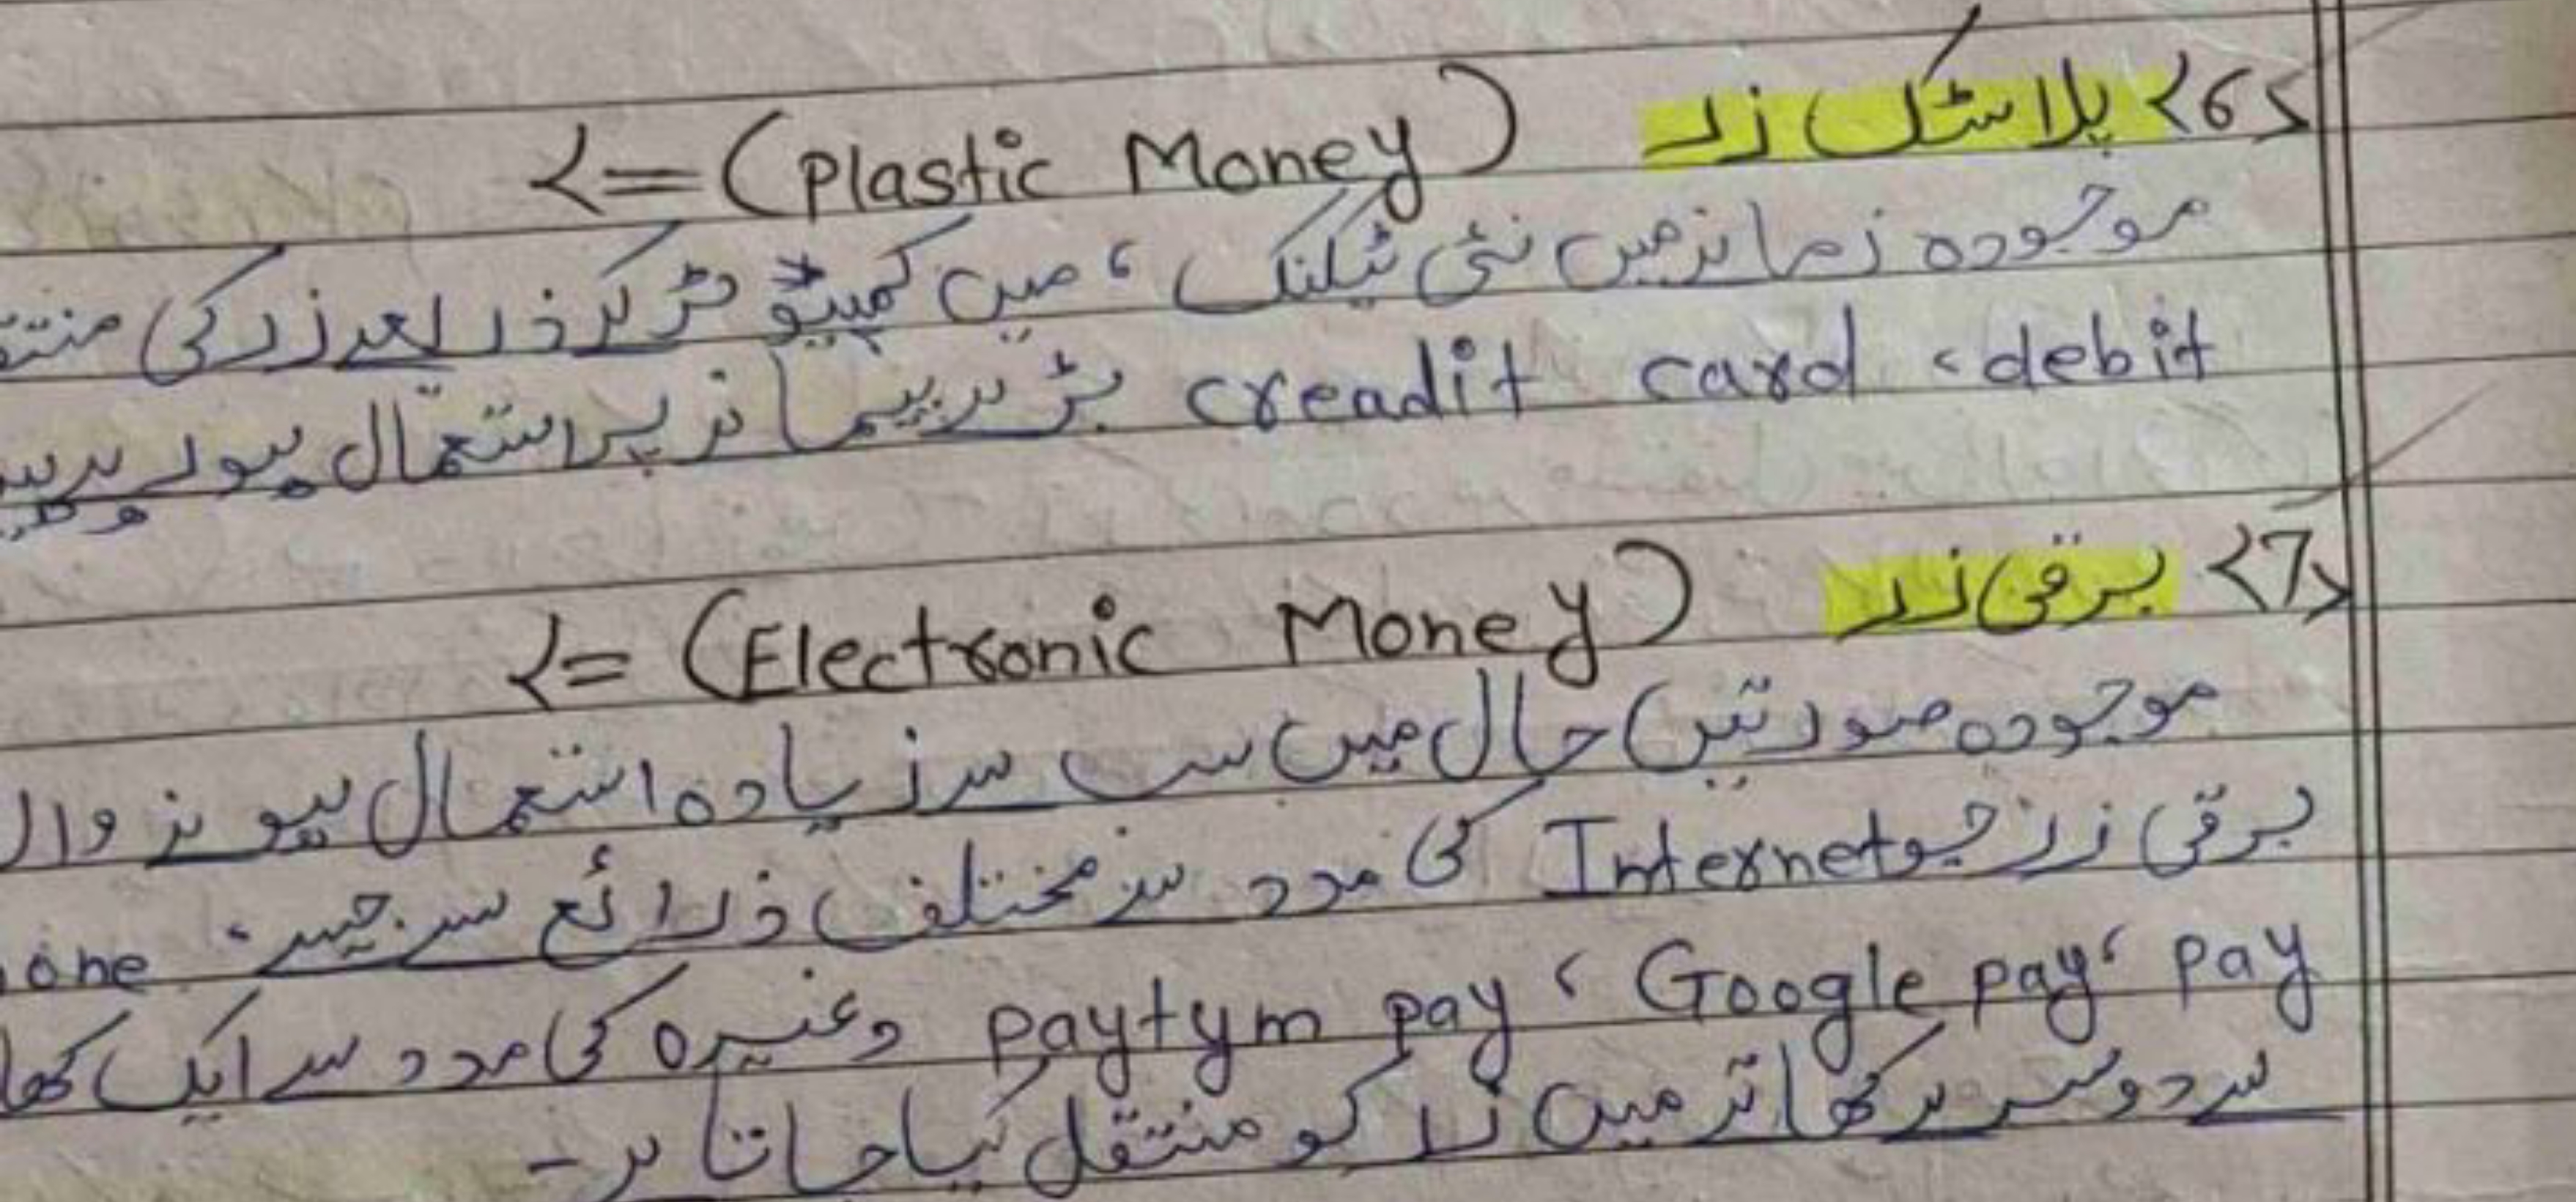 <6> پلاسٹک زر (Plastic Money) =>
موجودہ زمانے میں نئی ٹیکنک ، میں کمپیوٹر کے ذریعے زر کی
debit ، creadit card بڑے پیمانے پر استعمال ہو رہے
<7> برقی زر (Electronic Money) =>
موجودہ صورتیں حال میں سب سے زیادہ استعمال ہونے
برقی زر جو Internet کی مدد سے مختلف ذرائع سے جیسے ،
pay ، Google pay ، paytym pay وغیرہ کی مدد سے ایک
سے دوسرے کھاتے میں زر کو منتقل کیا جاتا ہے -